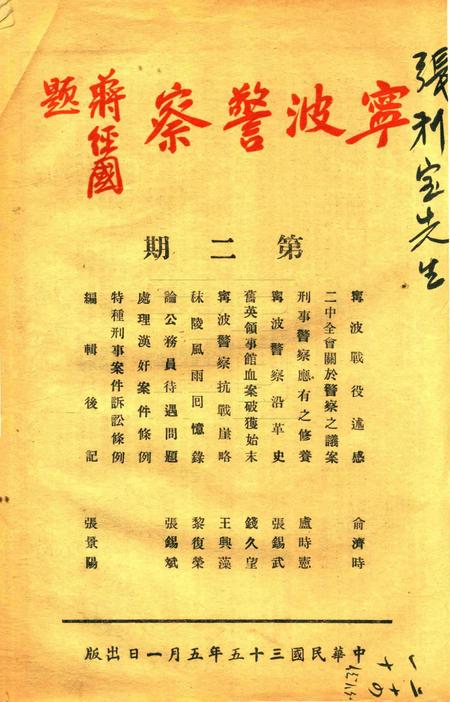 寧波警察
蔣經國
題
張利宝先生
第二期
寗波戰役述感 俞濟時
二中全會關於警察之議案
刑事警察應有之修養 盧時憲
寗波警察沿革史 張錫武
舊英領事館血案破獲始末 錢久望
寗波警察抗戰崖略 王興藻
秣陵風雨囘憶錄 黎復榮
論公務員待遇問題 張錫斌
處理漢奸案件條例
特種刑事案件訴訟條例
編輯後記 張景陽
中華民國三十五年五月一日出版